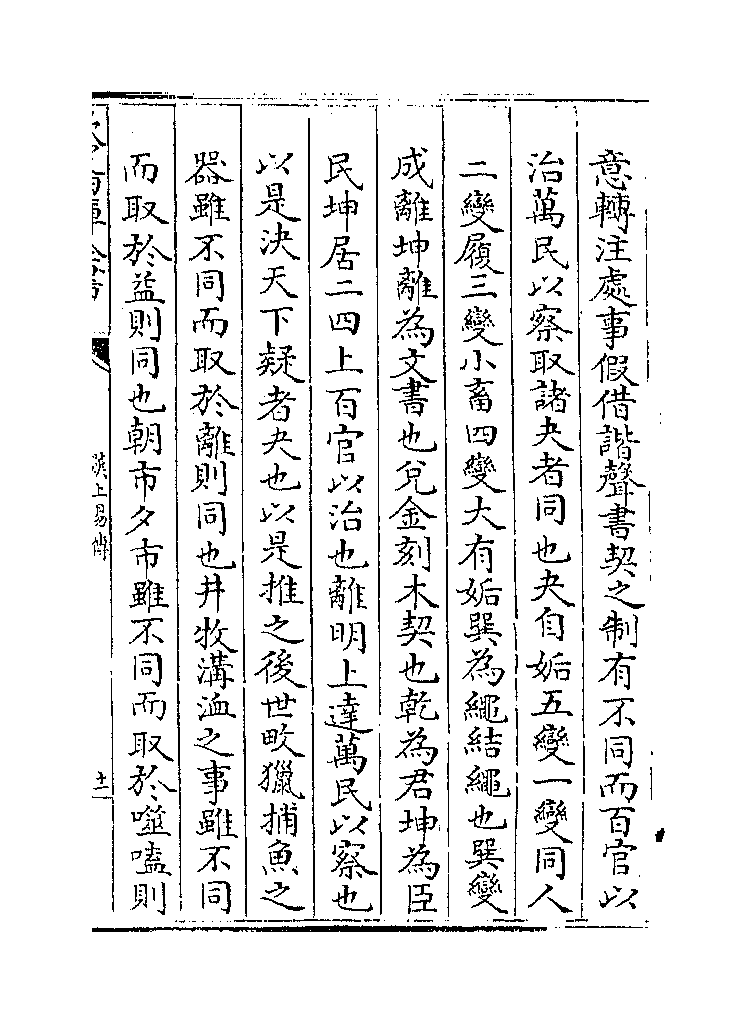 意轉注處事假借諧聲書契之制有不同而百官以
治萬民以察取諸夬者同也夬自姤五變一變同人
二變履三變小畜四變大有姤巽為繩結繩也巽變
成離坤離為文書也兌金刻木契也乾為君坤為臣
民坤居二四上百官以治也離明上達萬民以察也
以是決天下疑者夬也以是推之後世畋獵捕魚之
器雖不同而取於離則同也井牧溝洫之事雖不同
而取於益則同也朝市夕市雖不同而取於噬嗑則
漢上易傳
十一